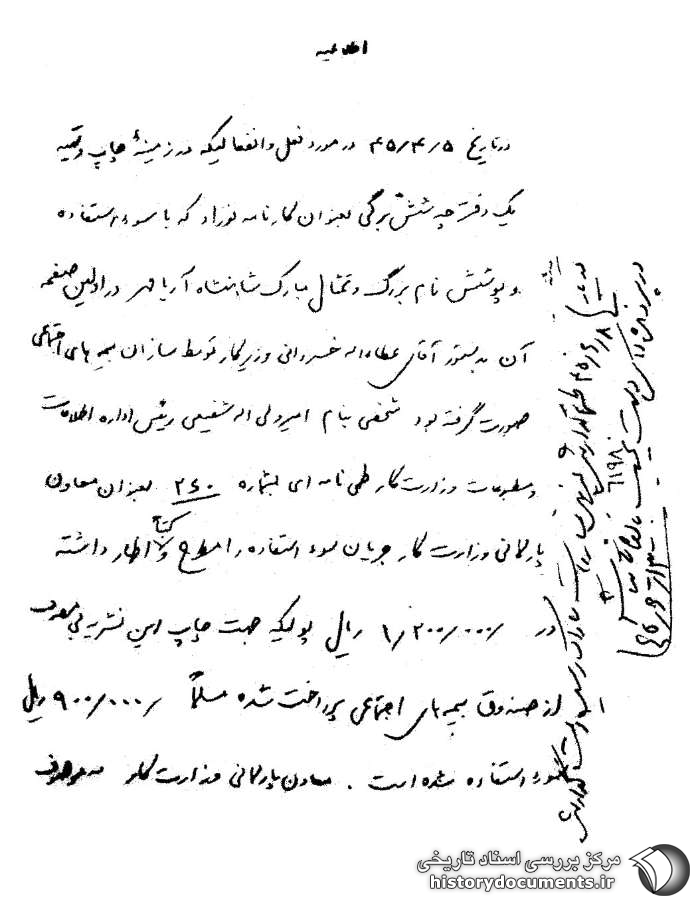 اطلاعیه
در تاریخ ۴۵/۴/۵ در مورد فعل و انفعالیکه در زمینهٔ چاپ و تهیه
یک دفترچه شش برگی بعنوان کارنامه نوزاد که با سوء استفاده
و پوشش نام بزرگ و تمثال مبارک شاهنشاه آریامهر در اولین صفحه
آن بدستور آقای عطاءاله خسروانی وزیر کار توسط سازمان بیمه های اجتماعی
صورت گرفته بود شخصی بنام امیر ولی اله شفیعی رئیس اداره اطلاعات
و مطبوعات وزارت کار طی نامه ای بشماره ۲۶۰ بعنوان معاون
پارلمانی وزارت کار جریان سوء استفاده را مطرح و کتباً اظهار داشته
در ۱/۲۰۰/۰۰۰ ریال پولیکه جهت چاپ این نشریه بی مصرف
از صندوق بیمه های اجتماعی پرداخت شده مسلماً ۹۰۰/۰۰۰ ریال
سوء استفاده شده است . معاون پارلمانی وزارت کار
۴۵/۶/۸
۶۱۹۸
مرکز بررسی اسناد تاریخی
historydocuments.ir